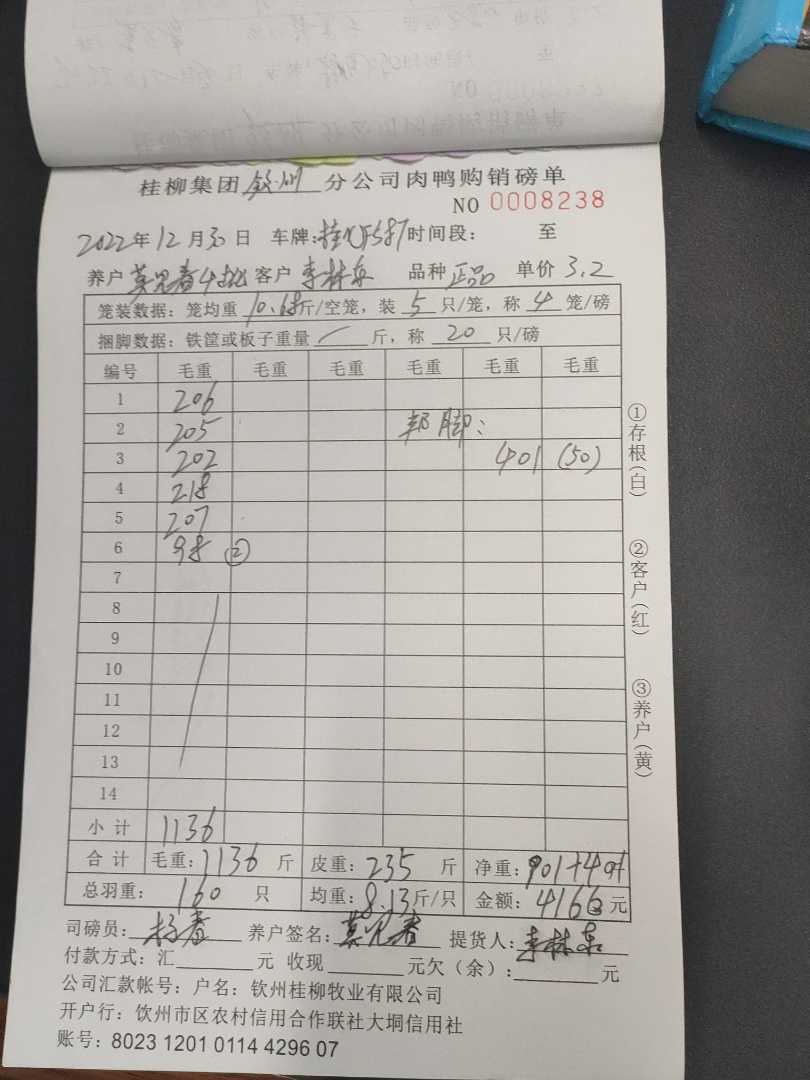 桂柳集团 钦州 分公司肉鸭购销磅单
NO 0008238
2022年12月30日 车牌: 时间段: 至
养户 4批 客户 李林 品种 正品 单价 3.2
笼装数据: 笼均重 10.68斤/空笼, 装 5 只/笼, 称 4 笼/磅
捆脚数据: 铁筐或板子重量 斤, 称 20 只/磅
编号 毛重 毛重 毛重 毛重 毛重 毛重
1 206
2 205 邦脚:
3 202 401 (50)
4 218
5 207
6 98 ②
7
8
9
10
11
12
13
14
小计 1136
合计 毛重: 1136 斤 皮重: 235 斤 净重: 901+401
总羽重: 160 只 均重: 8.13斤/只 金额: 4166元
司磅员: 杨春 养户签名: 提货人: 李林
付款方式: 汇 元 收现 元欠(余): 元
公司汇款帐号: 户名: 钦州桂柳牧业有限公司
开户行: 钦州市区农村信用合作联社大垌信用社
账号: 8023 1201 0114 4296 07
①存根(白)
②客户(红)
③养户(黄)